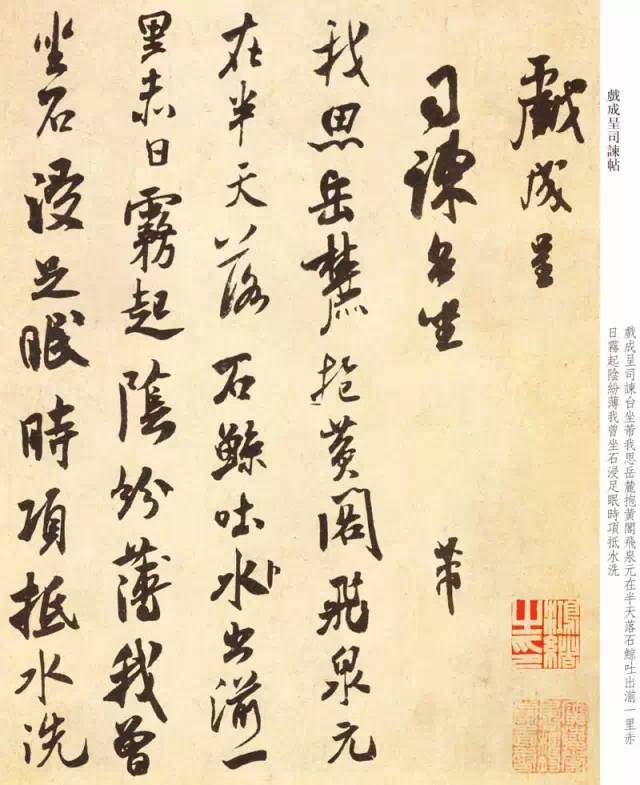 戲成呈司諫帖
戲成呈司諫台坐芾我思岳麓抱黃閣飛泉元在半天落石鯨吐出湔一里赤
日霧起陰紛薄我曾坐石浸足眠時項抵水洗
戲成呈
司諫台坐 芾
我思岳麓抱黃閣飛泉元
在半天落石鯨吐水出湔一
里赤日霧起陰紛薄我曾
坐石浸足眠時項抵水洗